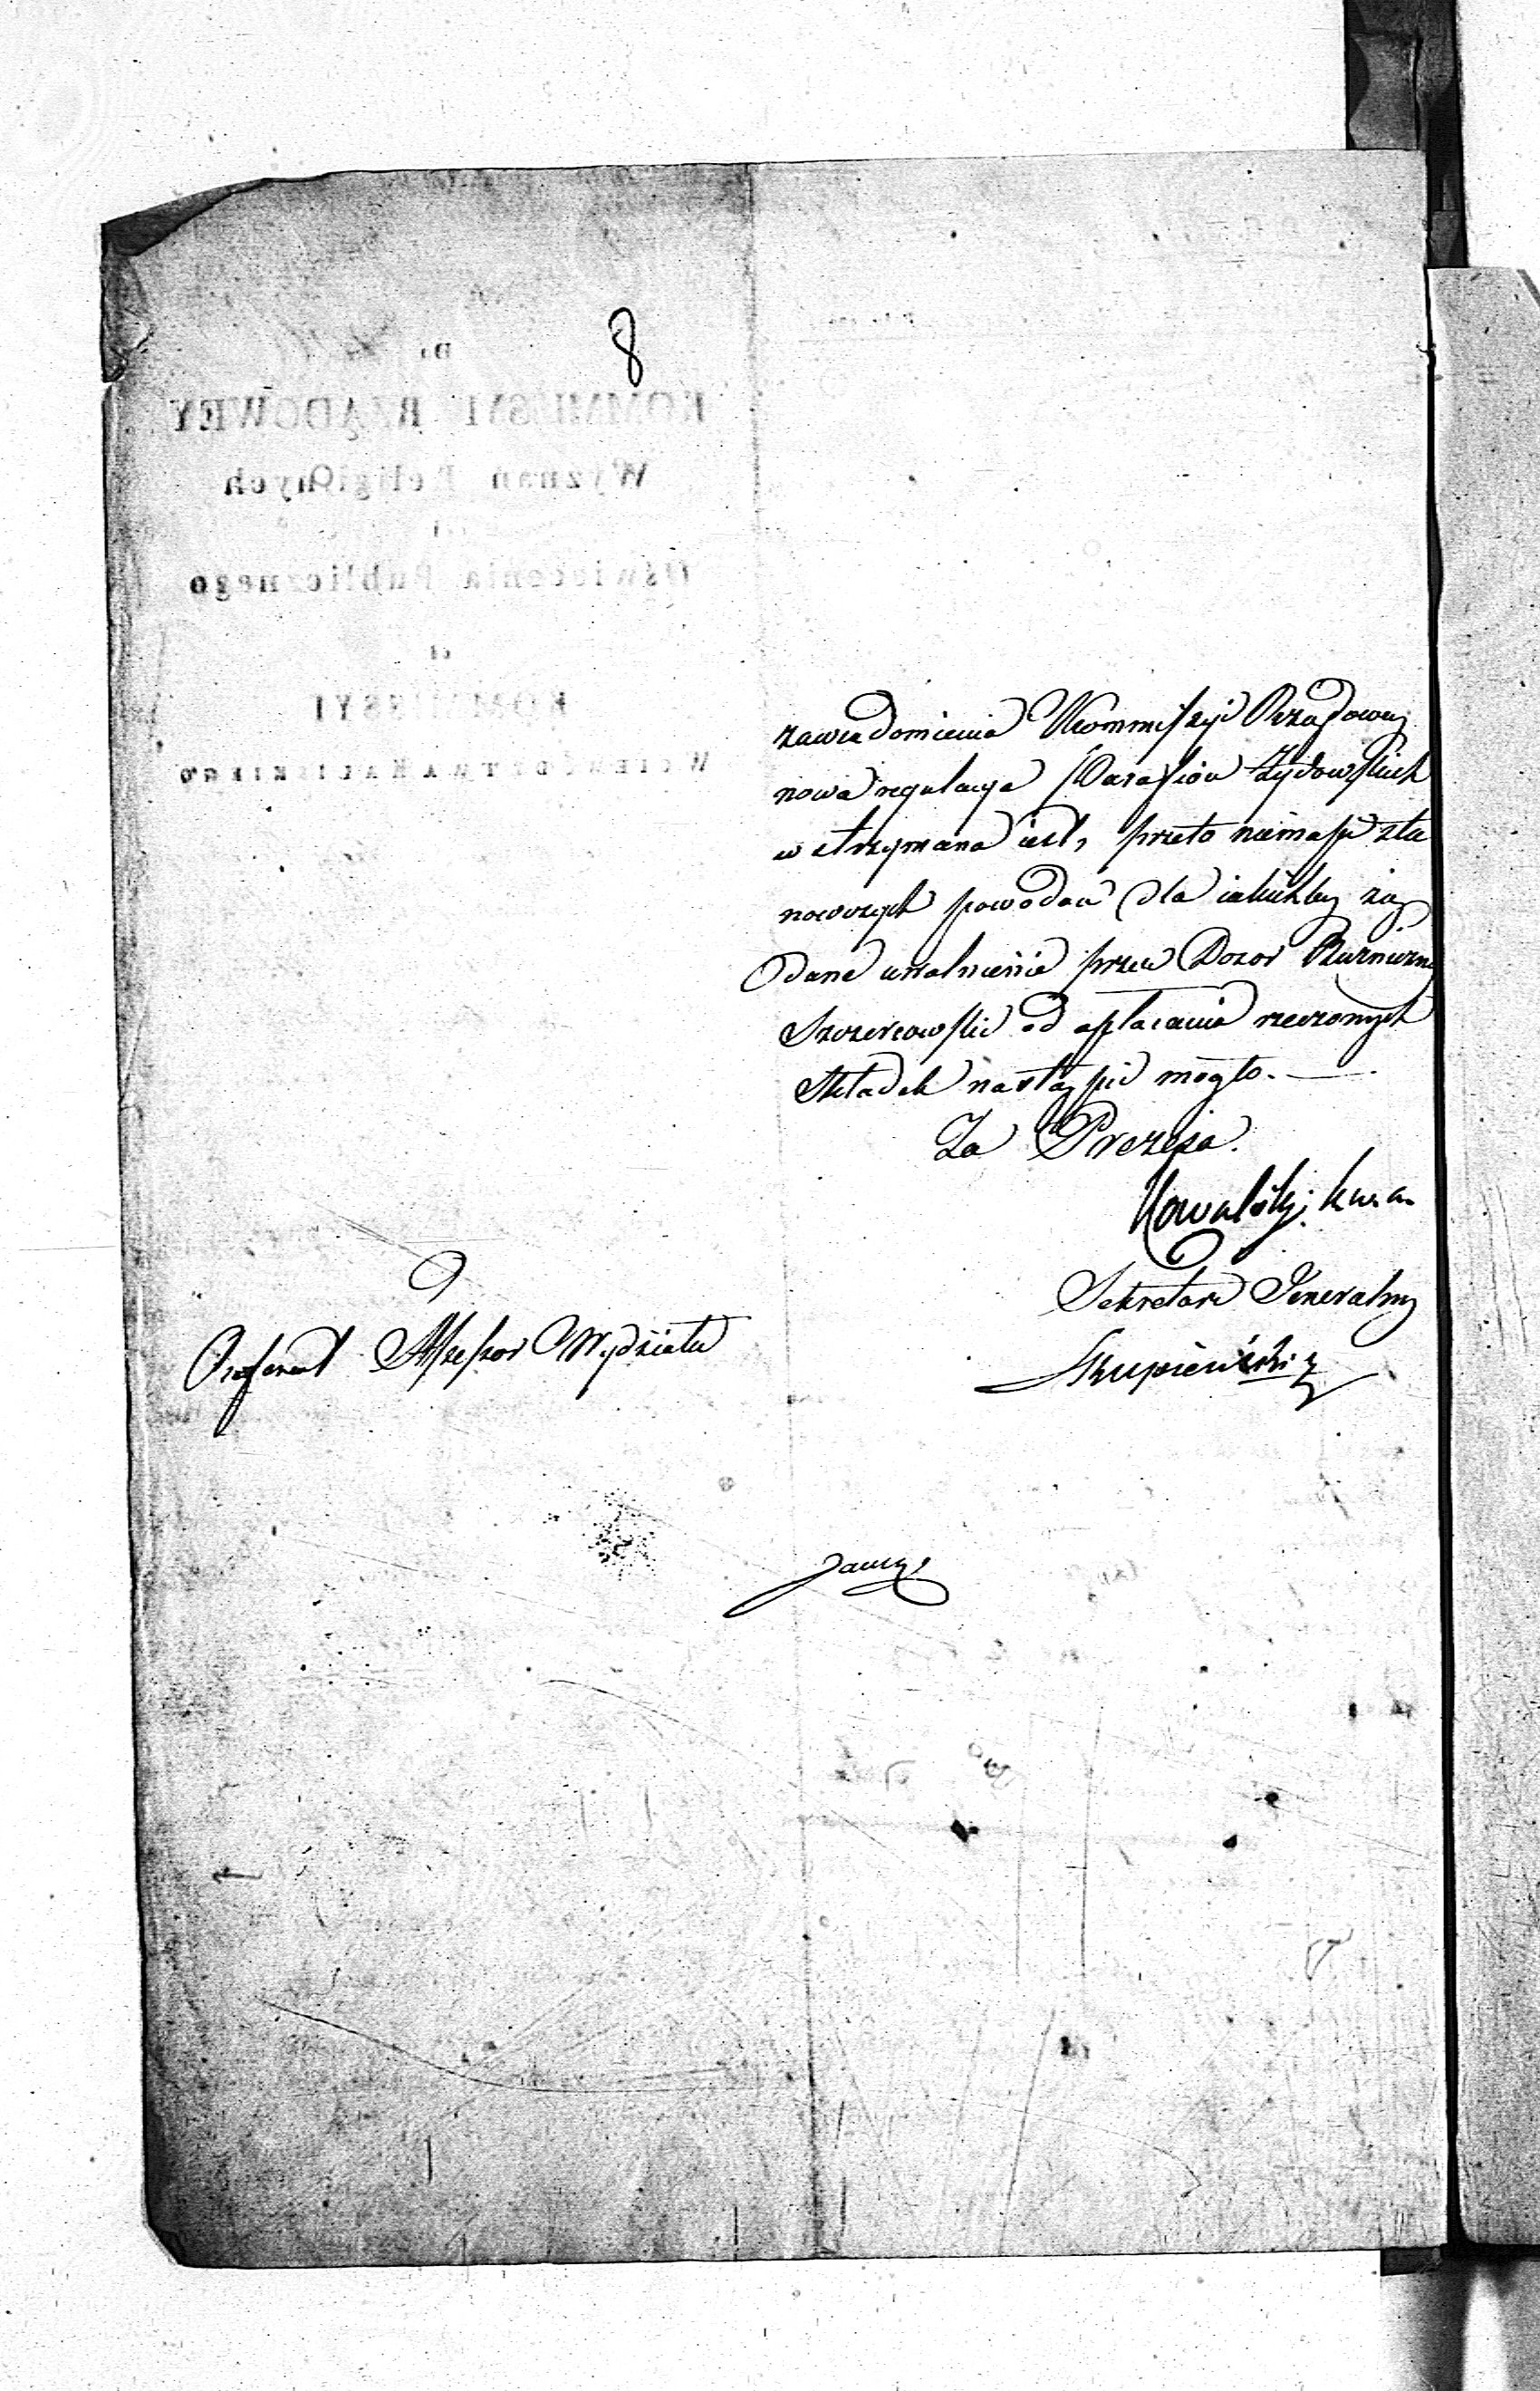 8
Do
KOMMISSYI RZĄDOWEY
Wyznań Religiinych
i
Oświecenia Publicznego
od
KOMMISSYI
WOIEWÓDZTWA KALISKIEGO
zawiadomienia Kommissyi Rządowey
nowa regulacya Parafiów Żydowskich
wstrzymana iest, przeto niema sta
nowczych powodów dla iakichby żą
dane uwolnienie przez Dozor Bużniczny
Szczercowski od opłacania rzeczonych
Składek nastąpić mogło. —
Za Prezesa.
Kowalski
Sekretarz Jeneralny
Referent Assessor Wydziału